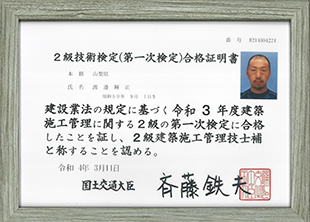 ２級技術検定(第一次検定)合格証明書
本籍 山梨県
氏名 渡邊輝正
建設業法の規定に基づく令和３年度建築
施工管理に関する２級の第一次検定に合格
したことを証し、２級建築施工管理技士補
と称することを認める。
令和4年3月11日
国土交通大臣 斉藤鉄夫